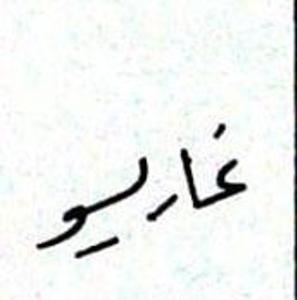 غاريسو